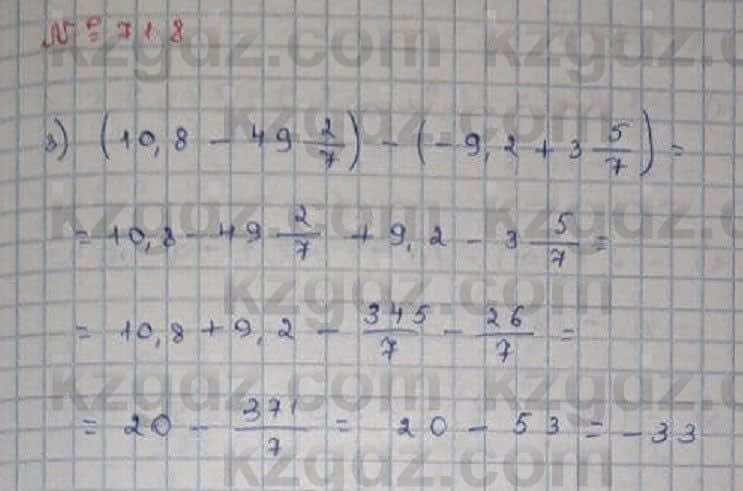 № 718
3) (10,8 - 49 2/7) - (-9,2 + 3 5/7) =
= 10,8 - 49 2/7 + 9,2 - 3 5/7 =
= 10,8 + 9,2 - 345/7 - 26/7 =
= 20 - 371/7 = 20 - 53 = -33
kzgdz.com kzgdz.com
kzgdz.com
kzgdz.com kzgdz.com
kzgdz.com
kzgdz.com kzgdz.com
kzgdz.com